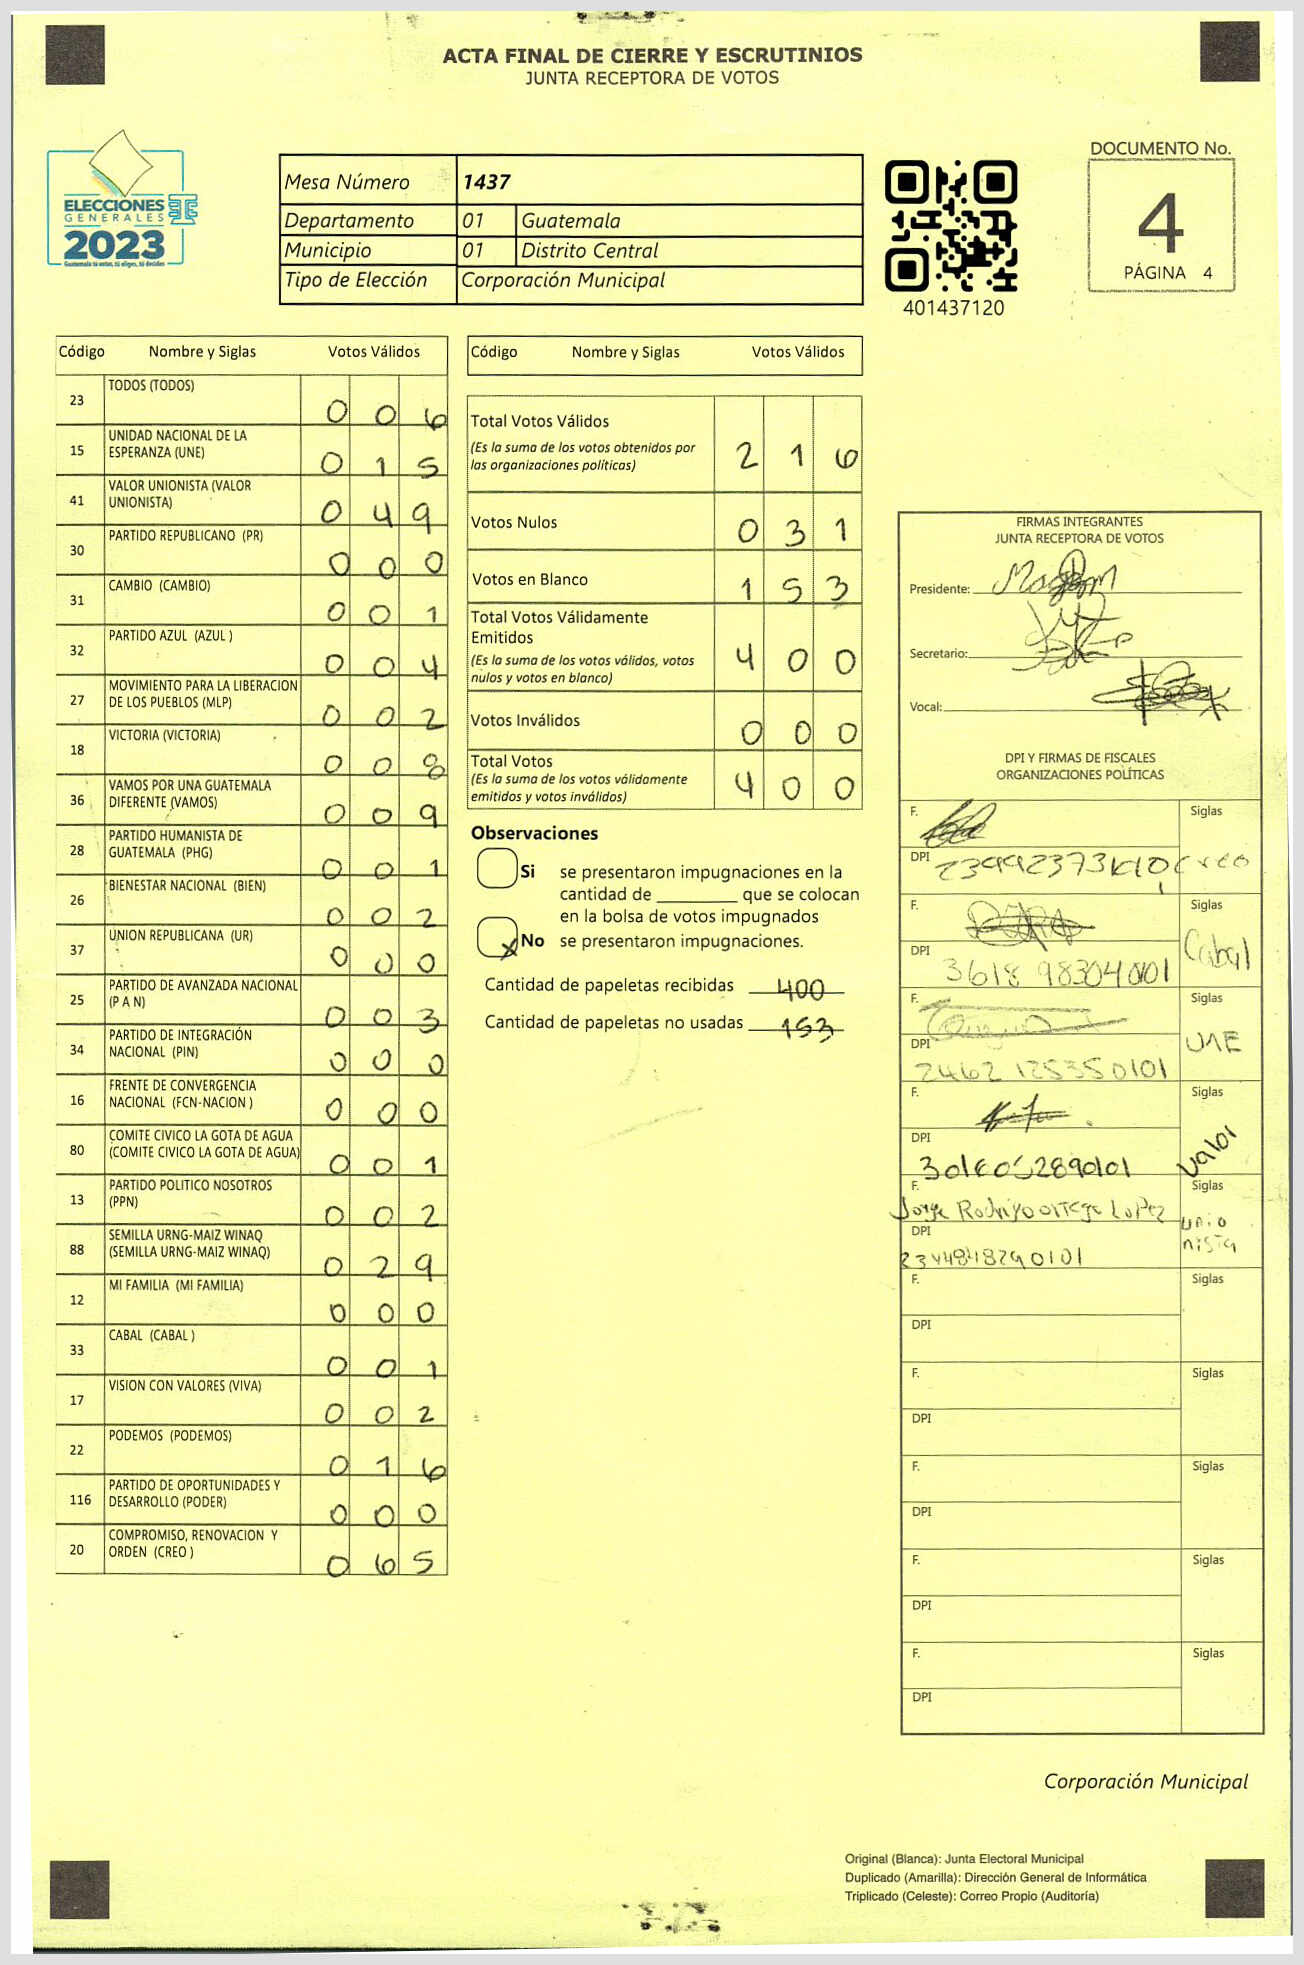 ACTA FINAL DE CIERRE Y ESCRUTINIOS
JUNTA RECEPTORA DE VOTOS
ELECCIONES
GENERALES
2023
Guatemala tú votas, tú eliges, tú decides
Mesa Número 1437
Departamento 01 Guatemala
Municipio 01 Distrito Central
Tipo de Elección Corporación Municipal
401437120
DOCUMENTO No.
4
PÁGINA 4
Código Nombre y Siglas Votos Válidos
23 TODOS (TODOS) 0 0 6
15 UNIDAD NACIONAL DE LA
ESPERANZA (UNE) 0 1 5
41 VALOR UNIONISTA (VALOR
UNIONISTA) 0 4 9
30 PARTIDO REPUBLICANO (PR) 0 0 0
31 CAMBIO (CAMBIO) 0 0 1
32 PARTIDO AZUL (AZUL ) 0 0 4
27 MOVIMIENTO PARA LA LIBERACION
DE LOS PUEBLOS (MLP) 0 0 2
18 VICTORIA (VICTORIA) 0 0 8
36 VAMOS POR UNA GUATEMALA
DIFERENTE (VAMOS) 0 0 9
28 PARTIDO HUMANISTA DE
GUATEMALA (PHG) 0 0 1
26 BIENESTAR NACIONAL (BIEN) 0 0 2
37 UNION REPUBLICANA (UR) 0 0 0
25 PARTIDO DE AVANZADA NACIONAL
(P A N) 0 0 3
34 PARTIDO DE INTEGRACIÓN
NACIONAL (PIN) 0 0 0
16 FRENTE DE CONVERGENCIA
NACIONAL (FCN-NACION ) 0 0 0
80 COMITE CIVICO LA GOTA DE AGUA
(COMITE CIVICO LA GOTA DE AGUA) 0 0 1
13 PARTIDO POLITICO NOSOTROS
(PPN) 0 0 2
88 SEMILLA URNG-MAIZ WINAQ
(SEMILLA URNG-MAIZ WINAQ) 0 2 9
12 MI FAMILIA (MI FAMILIA) 0 0 0
33 CABAL (CABAL ) 0 0 1
17 VISION CON VALORES (VIVA) 0 0 2
22 PODEMOS (PODEMOS) 0 1 6
116 PARTIDO DE OPORTUNIDADES Y
DESARROLLO (PODER) 0 0 0
20 COMPROMISO, RENOVACION Y
ORDEN (CREO ) 0 6 5
Código Nombre y Siglas Votos Válidos
Total Votos Válidos
(Es la suma de los votos obtenidos por
las organizaciones políticas) 2 1 6
Votos Nulos 0 3 1
Votos en Blanco 1 5 3
Total Votos Válidamente
Emitidos
(Es la suma de los votos válidos, votos
nulos y votos en blanco) 4 0 0
Votos Inválidos 0 0 0
Total Votos
(Es la suma de los votos válidamente
emitidos y votos inválidos) 4 0 0
Observaciones
Si se presentaron impugnaciones en la
cantidad de ________ que se colocan
en la bolsa de votos impugnados
x No se presentaron impugnaciones.
Cantidad de papeletas recibidas 400
Cantidad de papeletas no usadas 153
FIRMAS INTEGRANTES
JUNTA RECEPTORA DE VOTOS
Presidente:
Secretario:
Vocal:
DPI Y FIRMAS DE FISCALES
ORGANIZACIONES POLÍTICAS
F. Siglas
DPI Creo
F. Siglas
Cabal
DPI 3618 98304 0101
F. Siglas
UNE
DPI 2462 12535 0101
F. Siglas
Valor
DPI
F. Jorge Rodrigo Ortega Lopez Siglas
Unio
nista
DPI 2344848290101
F. Siglas
DPI
F. Siglas
DPI
F. Siglas
DPI
F. Siglas
DPI
F. Siglas
DPI
Corporación Municipal
Original (Blanca): Junta Electoral Municipal
Duplicado (Amarilla): Dirección General de Informática
Triplicado (Celeste): Correo Propio (Auditoría)